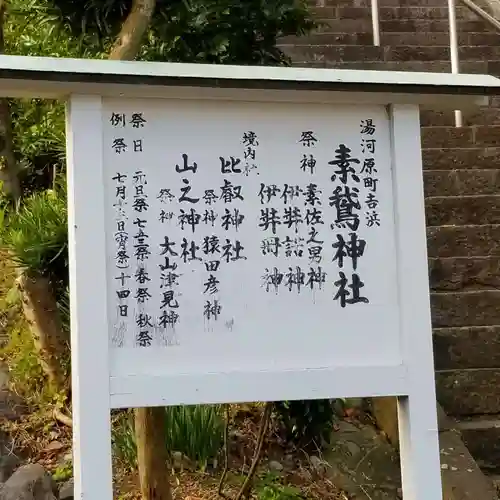 湯河原町吉浜
素鵞神社
祭神 素佐之男神
伊弉諾神
伊弉冊神
境内社
比叡神社
祭神 猿田彦神
山之神社
祭神 大山津見神
祭日 元旦祭 七五三祭 春祭 秋祭
例祭 七月十三日(宵祭)十四日